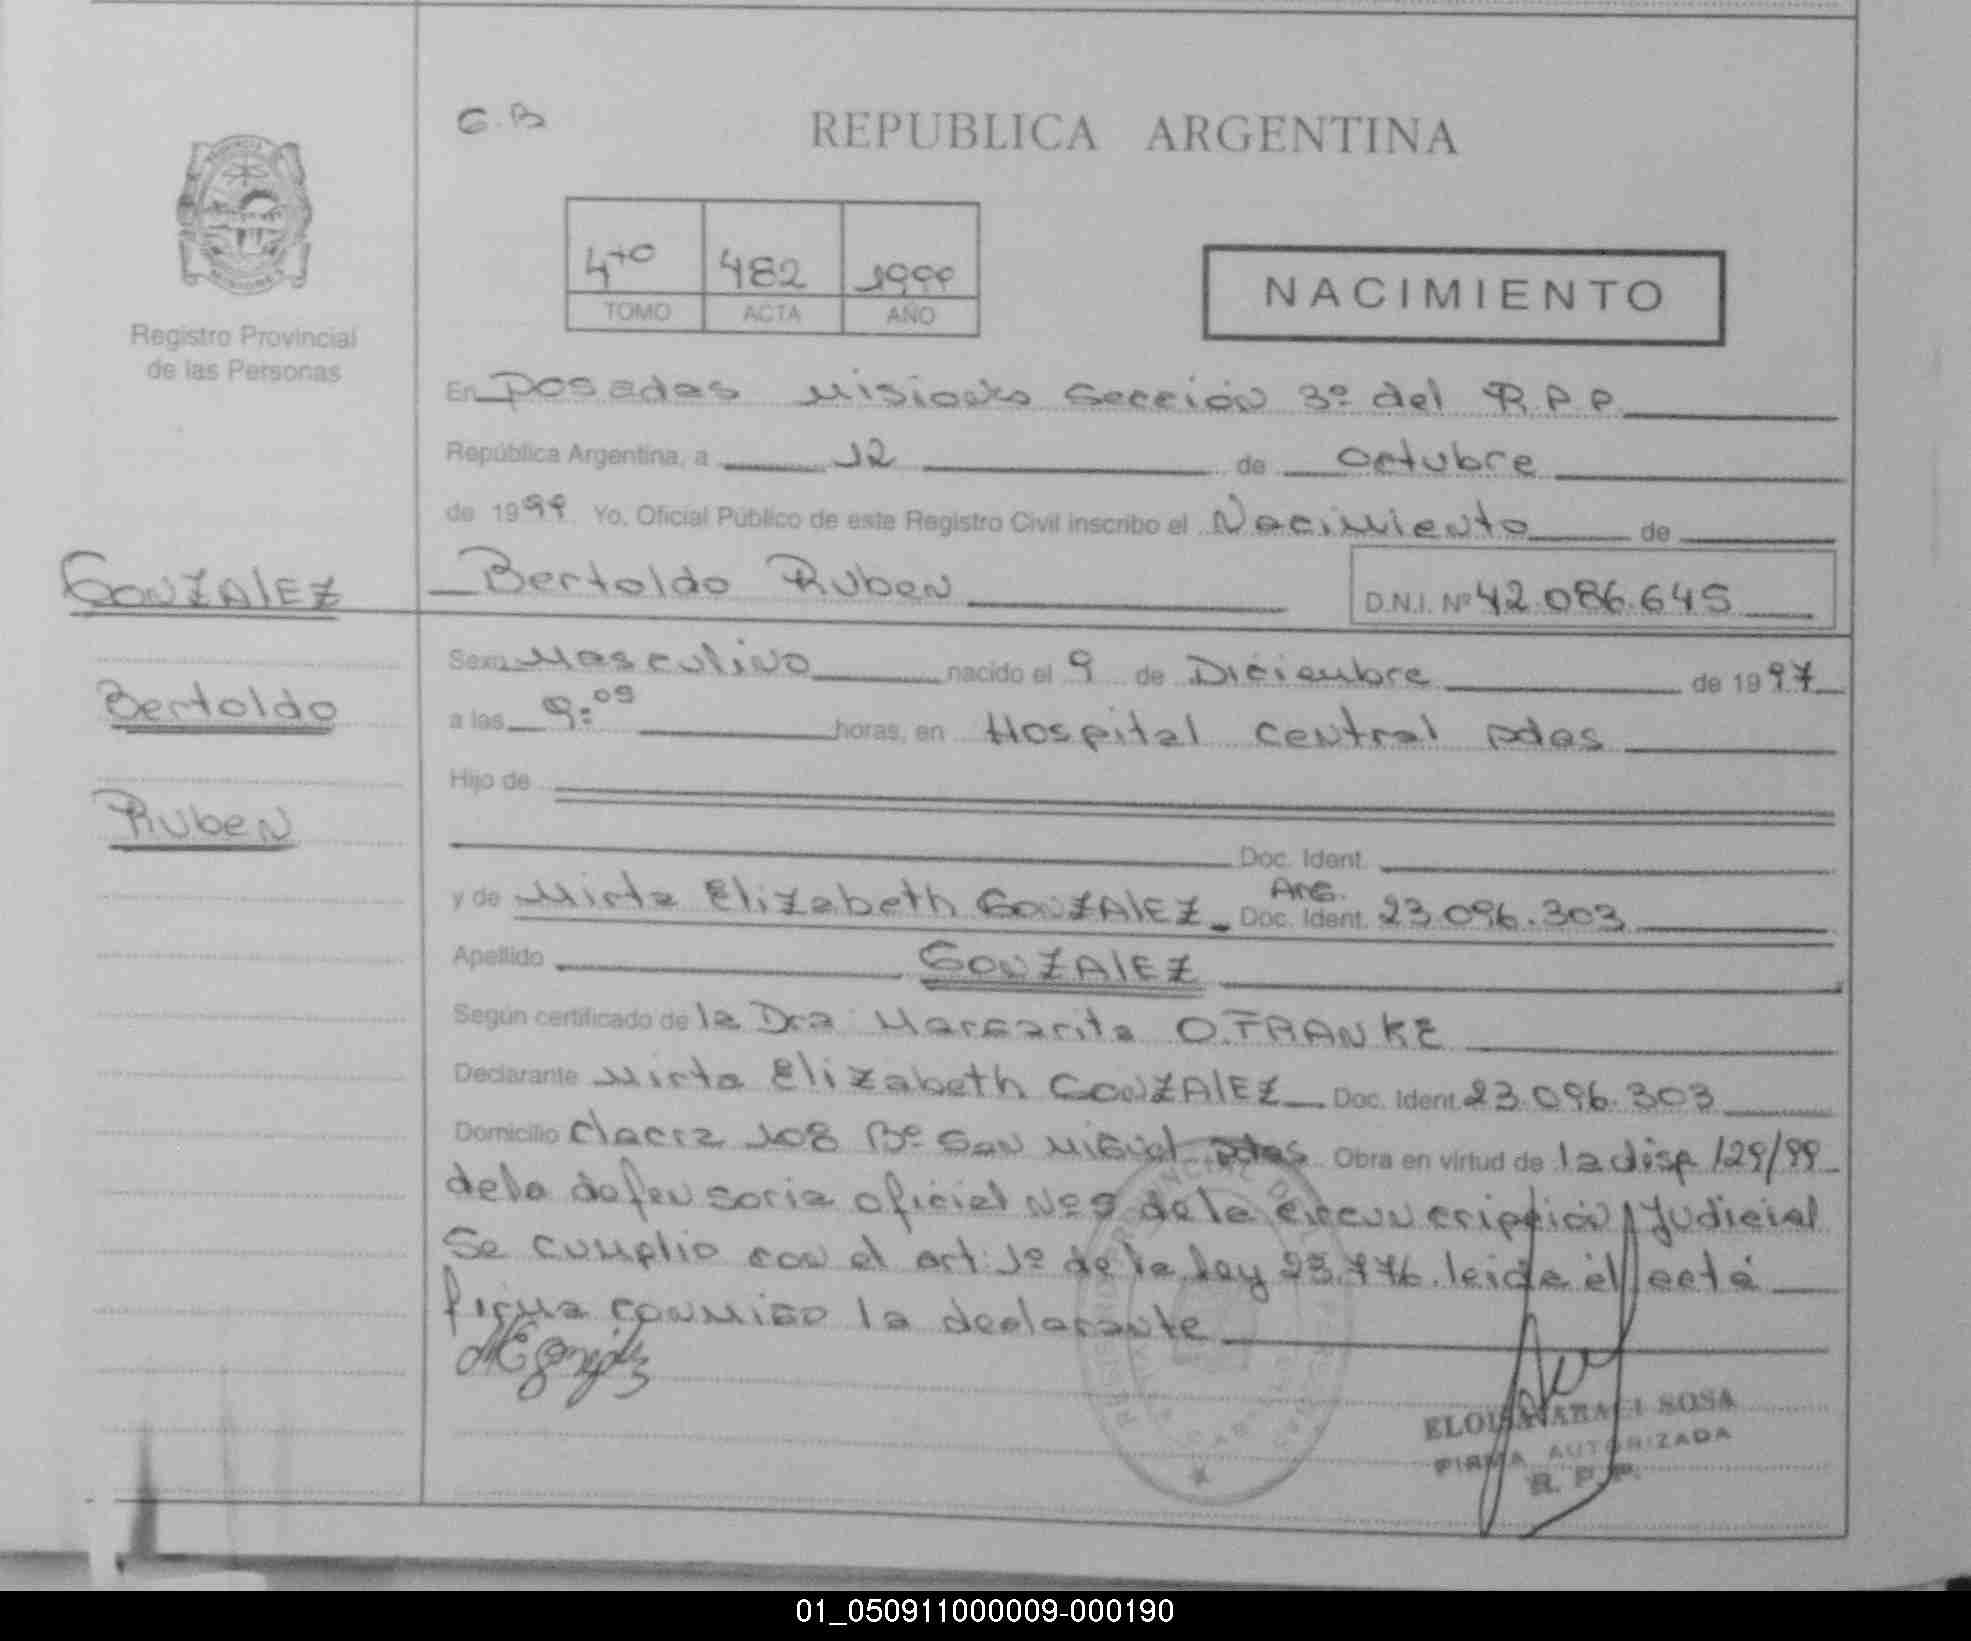 G.B
REPUBLICA ARGENTINA
4to 482 1999
TOMO ACTA AÑO
NACIMIENTO
Registro Provincial
de las Personas
En Posadas Misiones Sección 3º del R.P.P
República Argentina, a 12 de octubre
de 1999 Yo, Oficial Público de este Registro Civil inscribo el Nacimiento de
GONZALEZ
Bertoldo Ruben D.N.I. Nº 42.086.645
Sexo Masculino nacido el 9 de Diciembre de 1997
Bertoldo
a las 9:09 horas, en Hospital central pdas
Hijo de
Ruben
Doc. Ident.
y de Mirta Elizabeth GONZALEZ Arg. Doc. Ident. 23.096.303
Apellido GONZALEZ
Según certificado de la Dra Margarita O. FRANKE
Declarante Mirta Elizabeth GONZALEZ Doc. Ident. 23.096.303
Domicilio chacra 108 Bº San Miguel pdas Obra en virtud de la disp 129/99
de la defensoria oficial Nº 9 de la circunscripción Judicial
Se cumplio con el art: 1º de la ley 23.776. leida el acta
firma conmigo la declarante
ELOISA ARACI SOSA
FIRMA AUTORIZADA
R. P. P.
01_050911000009-000190